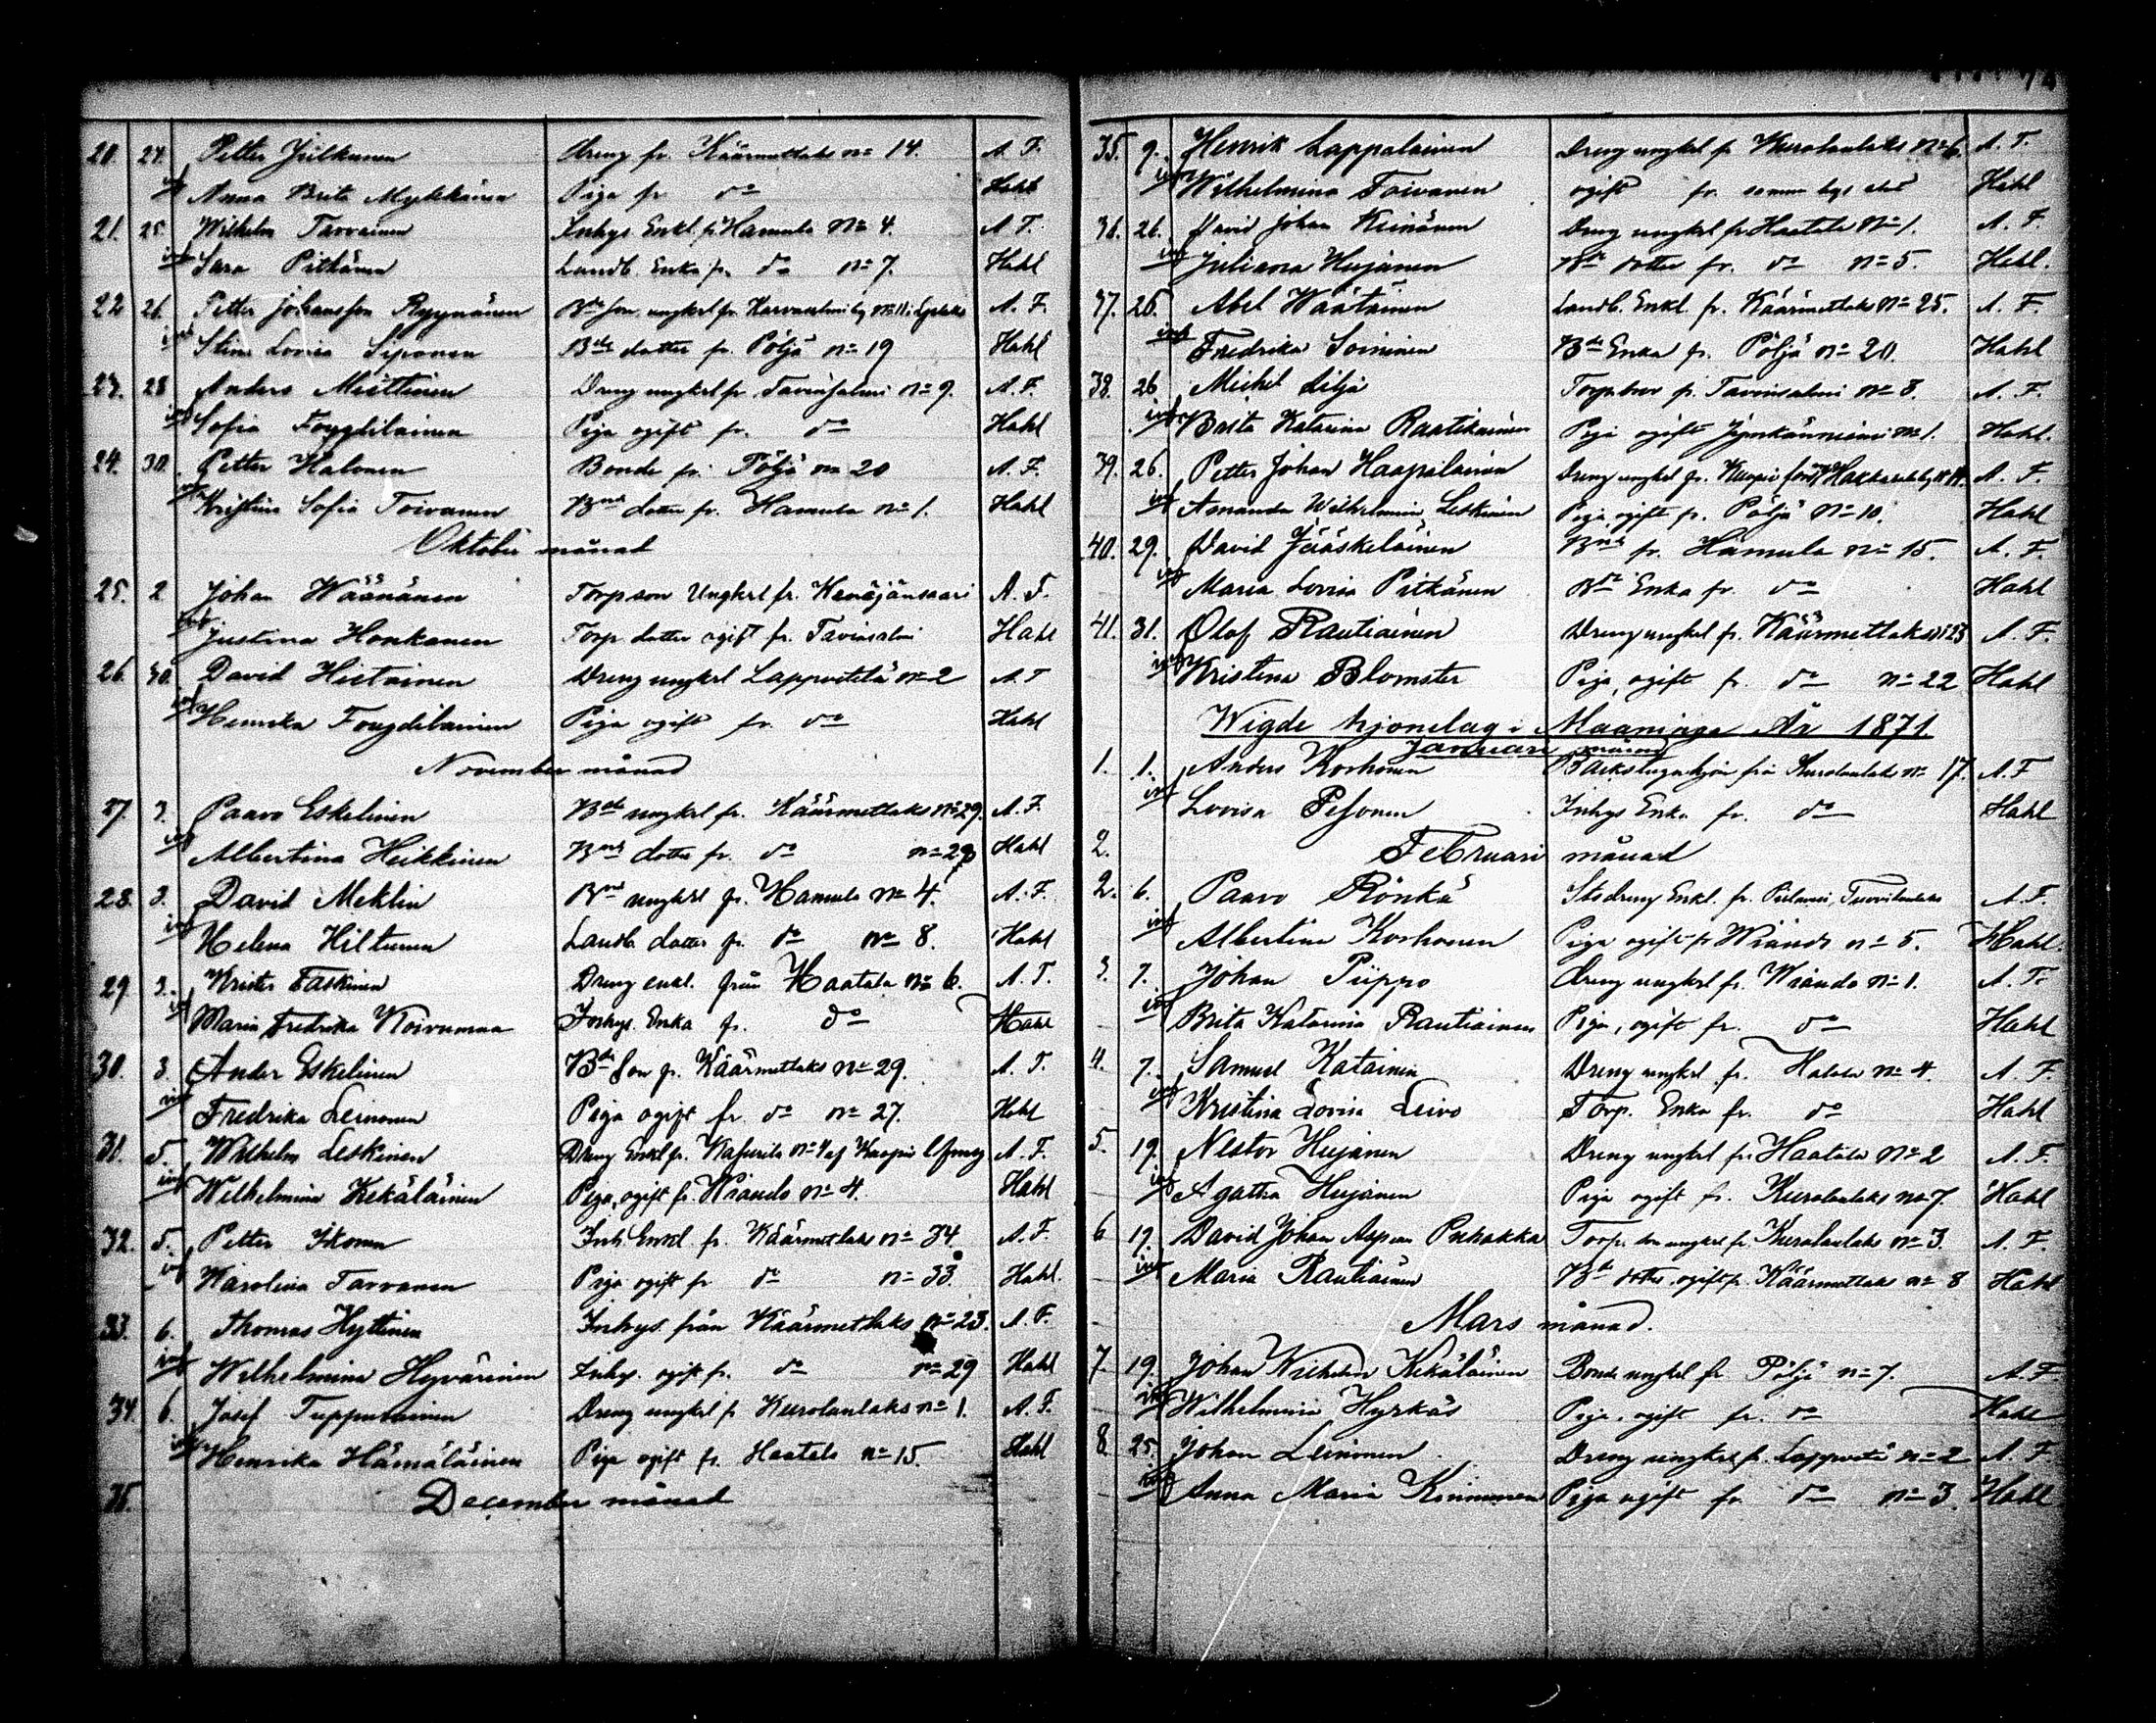 20. 24. Petter Julkunen Dreng fr. Käärmetlaks no 14. A. F.
Anna Brita Mykkänen Piga fr do Hahl
21. 25. Wilhelm Tarvainen Inhys. Enkl. fr Hamula No 4. A F.
Sara Pitkänen Landb. Enka fr. do no 7. Hahl
22 26. Petter Johansson Ryynänen Bde son, ungkrl fr. A. F.
Stina Lovisa Siponen Bde dotter fr. Pöljä no 19 Hahl
23. 28 Anders Miettinen Dreng ungkrl fr. Tavinsalmi no 9. A. F.
Sofia Fougdilainen Piga ogift fr. do Hahl
24. 30. Petter Halonen Bonde fr. Pöljä no 20 A. F.
Kristina Sofia Toivanen Bnd dotter fr. Hamula no 1. Hahl
Oktober månad
25. 2 Johan Wäänänen Torp son Ungkrl fr. Kenäjänsaari A. F.
Justina Honkanen Torp dotter ogift fr. Tavinsalmi Hahl
26. 30. David Hietainen Dreng ungkrl Lappvetelä no 2 A. F
Henrika Fougdilainen Piga ogift fr. do Hahl
November månad
27. 3. Paavo Eskelinen Bde ungkrl fr. Käärmetlaks No 29. A. F.
Albertina Heikkinen Bnd dotter fr. do no 29 Hahl
28. 3. David Meklin Bnd ungkrl fr. Hamula No 4. A. F.
Helena Hiltunen Landb. dotter fr. do No 8. Hahl
29 3. Krister Taskinen Dreng enkl. från Haatala No 6. A. F.
Maria Fredrika Koivumaa Inhys. Enka fr. do Hahl
30. 3. Ander Eskelinen Bde son fr. Käärmetlaks No 29. A. F.
Fredrika Leinonen Piga ogift fr. do no 27. Hahl
31. 5. Wilhelm Leskinen Dreng Enkl fr. A. F.
Wilhelmina Kekäläinen Piga, ogift fr. Wiando No 4. Hahl
32. 5. Petter Ikonen Inh. Enkl. fr. Käärmetlaks no 34. A. F.
Karolina Tarvanen Piga ogift fr do no 33. Hahl.
33. 6. Thomas Hyttinen Inhys. från Käärmetlaks no 23. A. F.
Wilhelmina Hyvärinen Inhys. ogift fr. do no 29 Hahl
34. 6. Josef Tuppurainen Dreng ungkrl fr Kurolanlaks no 1. A. F.
Henrika Hämäläinen Piga ogift fr. Haatala no 15. Hahl
35. December månad
35. 9. Henrik Lappalainen Dreng ungkrl fr Kurolanlaks No 6. A. F.
Wilhelmina Toivanen ogift fr. samma Hahl
36. 26. David Johan Keinänen Dreng ungkrl fr Haatala No 1. A. F.
Juliana Hujanen Bde dotter fr. do no 5. Hahl.
37. 26. Abel Wäätäinen Landb. Enkl. fr. Käärmetlaks No 25. A. F.
Fredrika Soininen Bde Enka fr. Pöljä no 20. Hahl
38. 26 Michel Lilja fr. Tavinsalmi no 8. A. F.
Brita Katarina Raatikainen Piga ogift no 1. Hahl.
39. 26. Petter Johan Haapalainen Dreng ungkrl fr. Kuopio A. F.
Amanda Wilhelmina Leskinen Piga ogift fr. Pöljä No 10. Hahl
40. 29. David Jääskeläinen Bnd fr. Hamula no 15. A. F.
Maria Lovisa Pitkänen Bde Enka fr. do Hahl
41. 31. Olof Rautiainen Dreng ungkrl fr. Käärmetlaks No 23 A. F.
Kristina Blomster Piga, ogift fr. do no 22 Hahl
Wigde hjonelag i Maaninga År 1871.
Januari månad
1. 1. Anders Korhonen Backstuguhjon från Kurolanlaks no 17. A. F
Lovisa Pesonen Inhys Enka fr. do Hahl
2. Februari månad
2. 6. Paavo Rönkä Enkl. fr. A. F.
Albertina Korhonen Piga ogift fr Wiando no 5. Hahl.
3. 7. Johan Piippo Dreng ungkrl fr. Wiando No 1. A. F.
Brita Katarina Rautiainen Piga, ogift fr. do Hahl
4. 7. Samuel Katainen Dreng ungkrl fr. Hatala no 4. A. F.
Kristina Lovisa Leivo Torp. Enka fr. do Hahl
5. 19. Nestor Hujanen Dreng ungkrl fr. Haatala No 2 A. F.
Agatha Hujanen Piga ogift fr. Kurolanlaks no 7. Hahl
6 19. David Johan Puhakka Torp. son ungkrl fr. Kurolanlaks no 3. A. F.
Maria Rautiainen Bde dotter ogift fr. Käärmetlaks no 8 Hahl
Mars månad.
7. 19. Johan Wilhelm Kekäläinen Bonde ungkrl fr Pöljä no 7. A. F
Wilhelmina Hyrkäs Piga, ogift fr. do Hahl
8. 25. Johan Leinonen Dreng ungkrl fr. no 2 A. F
Anna Maria Kinnunen Piga ogift fr do no 3. Hahl